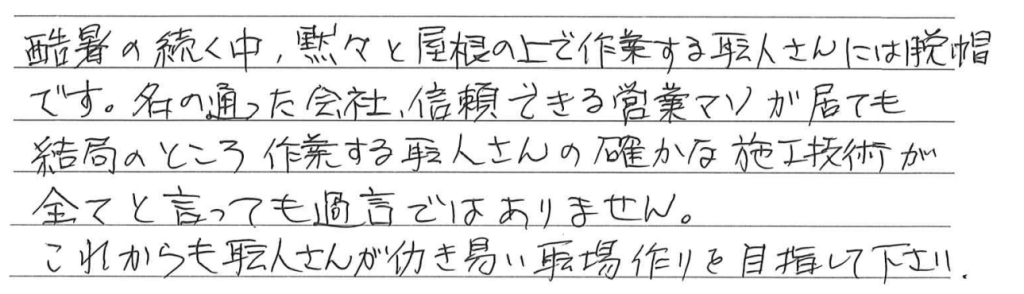 酷暑の続く中、黙々と屋根の上で作業する職人さんには脱帽
です。名の通った会社、信頼できる営業マンが居ても
結局のところ作業する職人さんの確かな施工技術が
全てと言っても過言ではありません。
これからも職人さんが働き易い職場作りを目指して下さい.